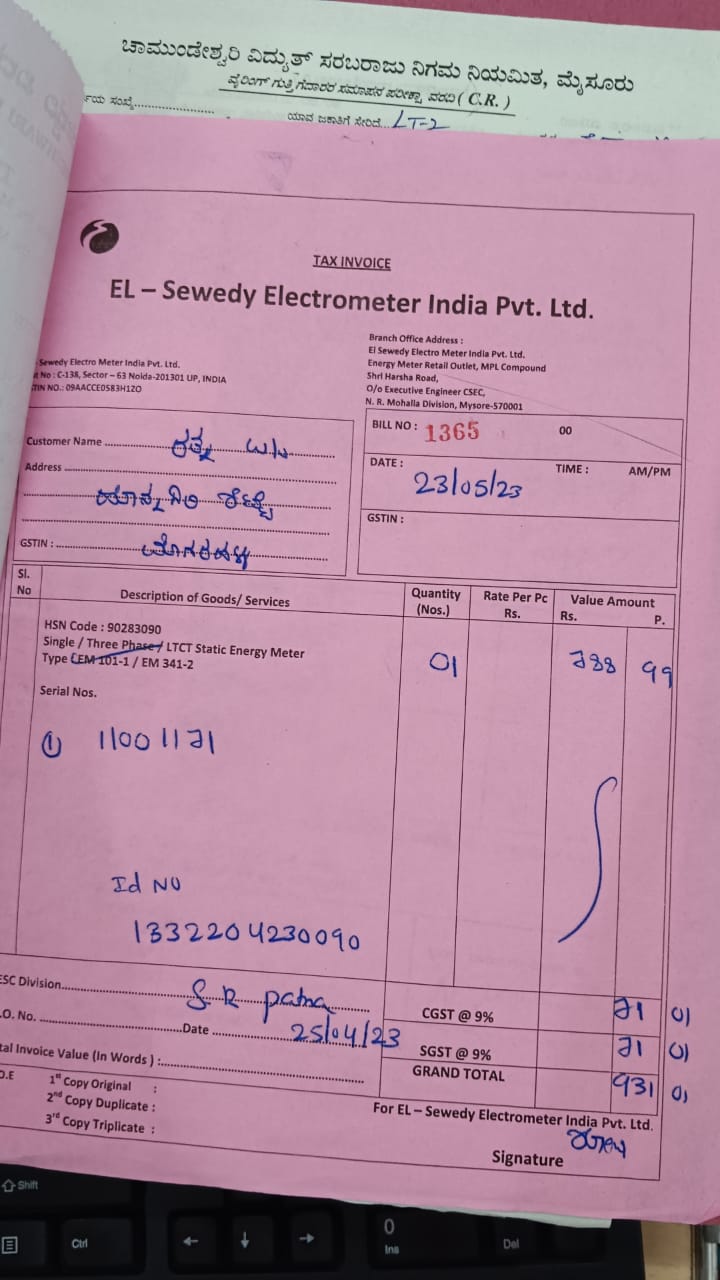 ಚಾಮುಂಡೇಶ್ವರಿ ವಿದ್ಯುತ್ ಸರಬರಾಜು ನಿಗಮ ನಿಯಮಿತ, ಮೈಸೂರು
ವೈರಿಂಗ್ ಗುತ್ತಿಗೆದಾರರ ಸಮಾಪನ ಪರೀಕ್ಷಾ ವರದಿ ( C.R. )
ಸಂಖ್ಯೆ....................
ಯಾವ ಜಕಾತಿಗೆ ಸೇರಿದೆ...LT-2
TAX INVOICE
EL – Sewedy Electrometer India Pvt. Ltd.
Sewedy Electro Meter India Pvt. Ltd.
No : C-138, Sector – 63 Noida-201301 UP, INDIA
TIN NO.: 09AACCE0583H1ZO
Branch Office Address :
El Sewedy Electro Meter India Pvt. Ltd.
Energy Meter Retail Outlet, MPL Compound
Shri Harsha Road,
O/o Executive Engineer CSEC,
N. R. Mohalla Division, Mysore-570001
Customer Name
Address
GSTIN :
BILL NO : 1365 00
DATE : 23/05/23 TIME : AM/PM
GSTIN :
Sl. No Description of Goods/ Services Quantity (Nos.) Rate Per Pc Rs. Value Amount Rs. P.
HSN Code : 90283090
Single / Three Phase / LTCT Static Energy Meter 01 788 99
Type LEM 101-1 / EM 341-2
Serial Nos.
① 11001171
Id NO
1332204230090
ESC Division S R patna
.O. No. Date 25/04/23
CGST @ 9% 71 01
SGST @ 9% 71 01
tal Invoice Value (In Words ) :
GRAND TOTAL 931 01
O.E 1st Copy Original :
2nd Copy Duplicate :
3rd Copy Triplicate :
For EL – Sewedy Electrometer India Pvt. Ltd.
Signature
Shift
Ctrl
0
Ins
Del